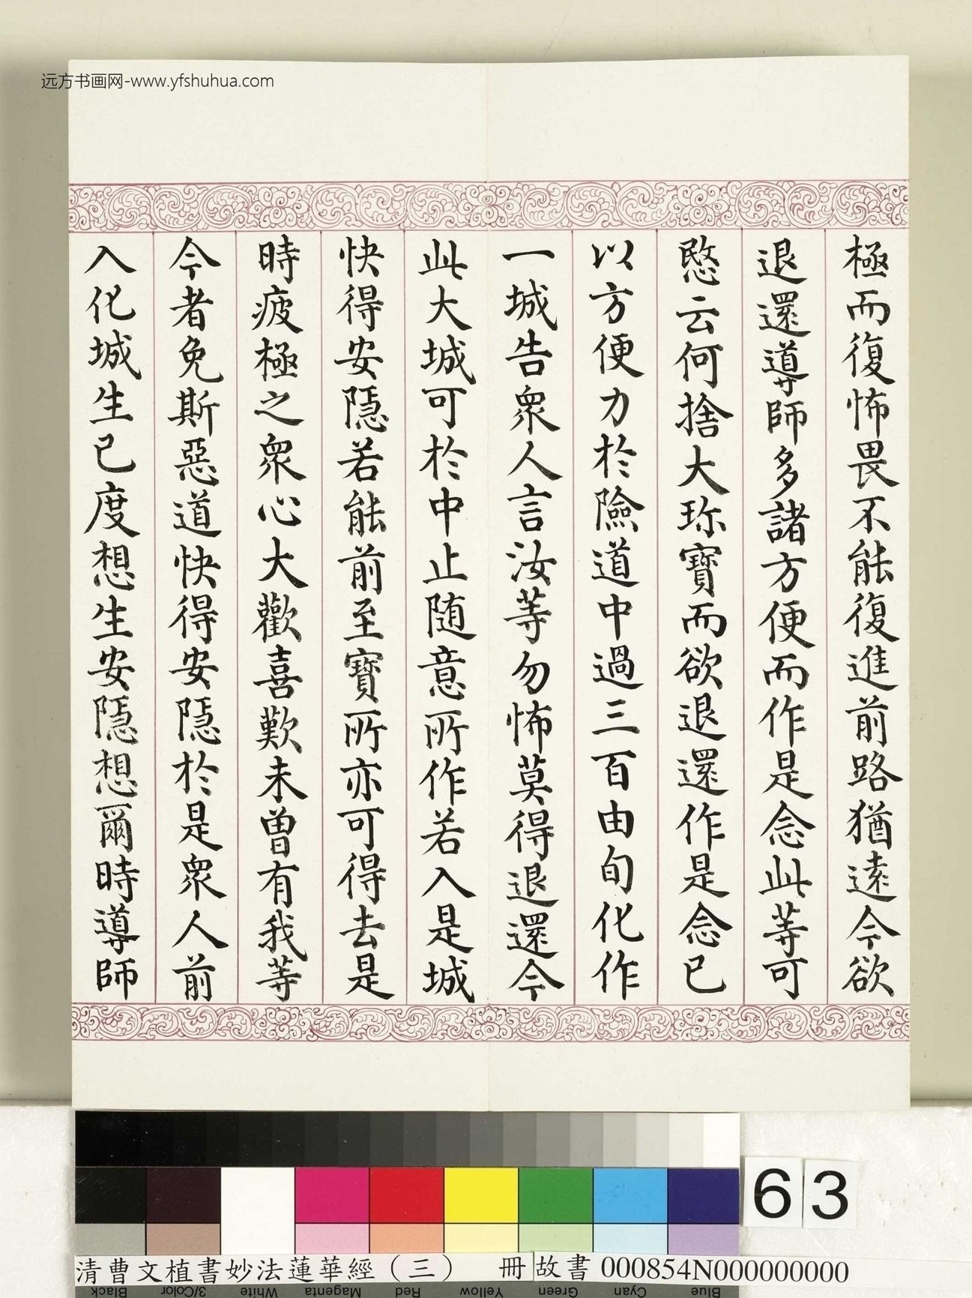 远方书画网-www.yfshuhua.com
極而復怖畏不能復進前路猶遠今欲
退還導師多諸方便而作是念此等可
愍云何捨大珎寶而欲退還作是念已
以方便力於險道中過三百由旬化作
一城告衆人言汝等勿怖莫得退還今
此大城可於中止随意所作若入是城
快得安隱若能前至寶所亦可得去是
時疲極之衆心大歡喜歎未曾有我等
今者免斯惡道快得安隱於是衆人前
入化城生已度想生安隱想爾時導師
63
清曹文植書妙法蓮華經（三） 冊 故書 000854N000000000
Black 3/Color White Magenta Red Yellow Green Cyan Blue